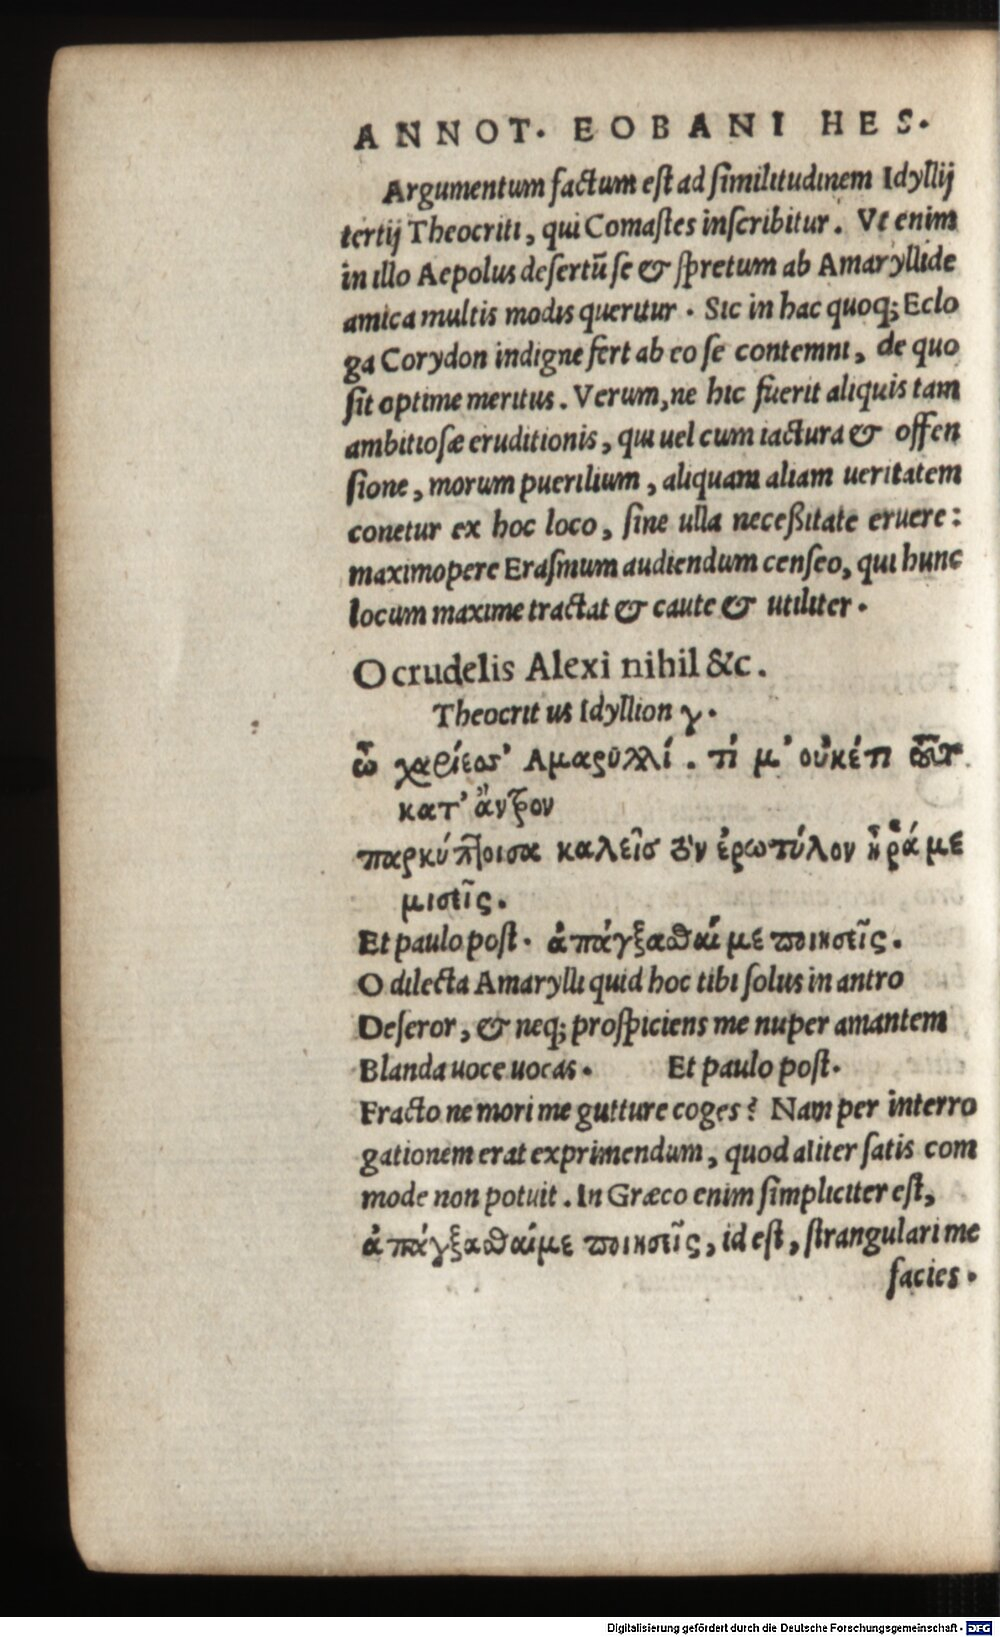 ANNOT. EOBANI HES.
Argumentum factum est ad similitudinem Idyllij
tertij Theocriti, qui Comastes inscribitur. Vt enim
in illo Aepolus desertũ se & spretum ab Amaryllide
amica multis modis queritur. Sic in hac quoq; Eclo
ga Corydon indigne fert ab eo se contemni, de quo
sit optime meritus. Verum, ne hic fuerit aliquis tam
ambitiosæ eruditionis, qui uel cum iactura & offen
sione, morum puerilium, aliquam aliam ueritatem
conetur ex hoc loco, sine ulla necessitate eruere:
maximopere Erasmum audiendum censeo, qui hunc
locum maxime tractat & caute & utiliter.
O crudelis Alexi nihil &c.
Theocritus Idyllion γ.
ὦ χαρίεσσ' Αμαρυλλί. τί μ' οὐκέτι τοῦτο
κατ' ἄντρον
παρκύπτοισα καλεῖς τὸν ἐρωτύλον ἦ ῥά με
μισεῖς.
Et paulo post. ἀπάγξασθαί με ποιησεῖς.
O dilecta Amarylli quid hoc tibi solus in antro
Deseror, & neq; prospiciens me nuper amantem
Blanda uoce uocas. Et paulo post.
Fracto ne mori me gutture coges? Nam per interro
gationem erat exprimendum, quod aliter satis com
mode non potuit. In Græco enim simpliciter est,
ἀπάγξασθαί με ποιησεῖς, id est, strangulari me
facies.
Digitalisierung gefördert durch die Deutsche Forschungsgemeinschaft - DFG